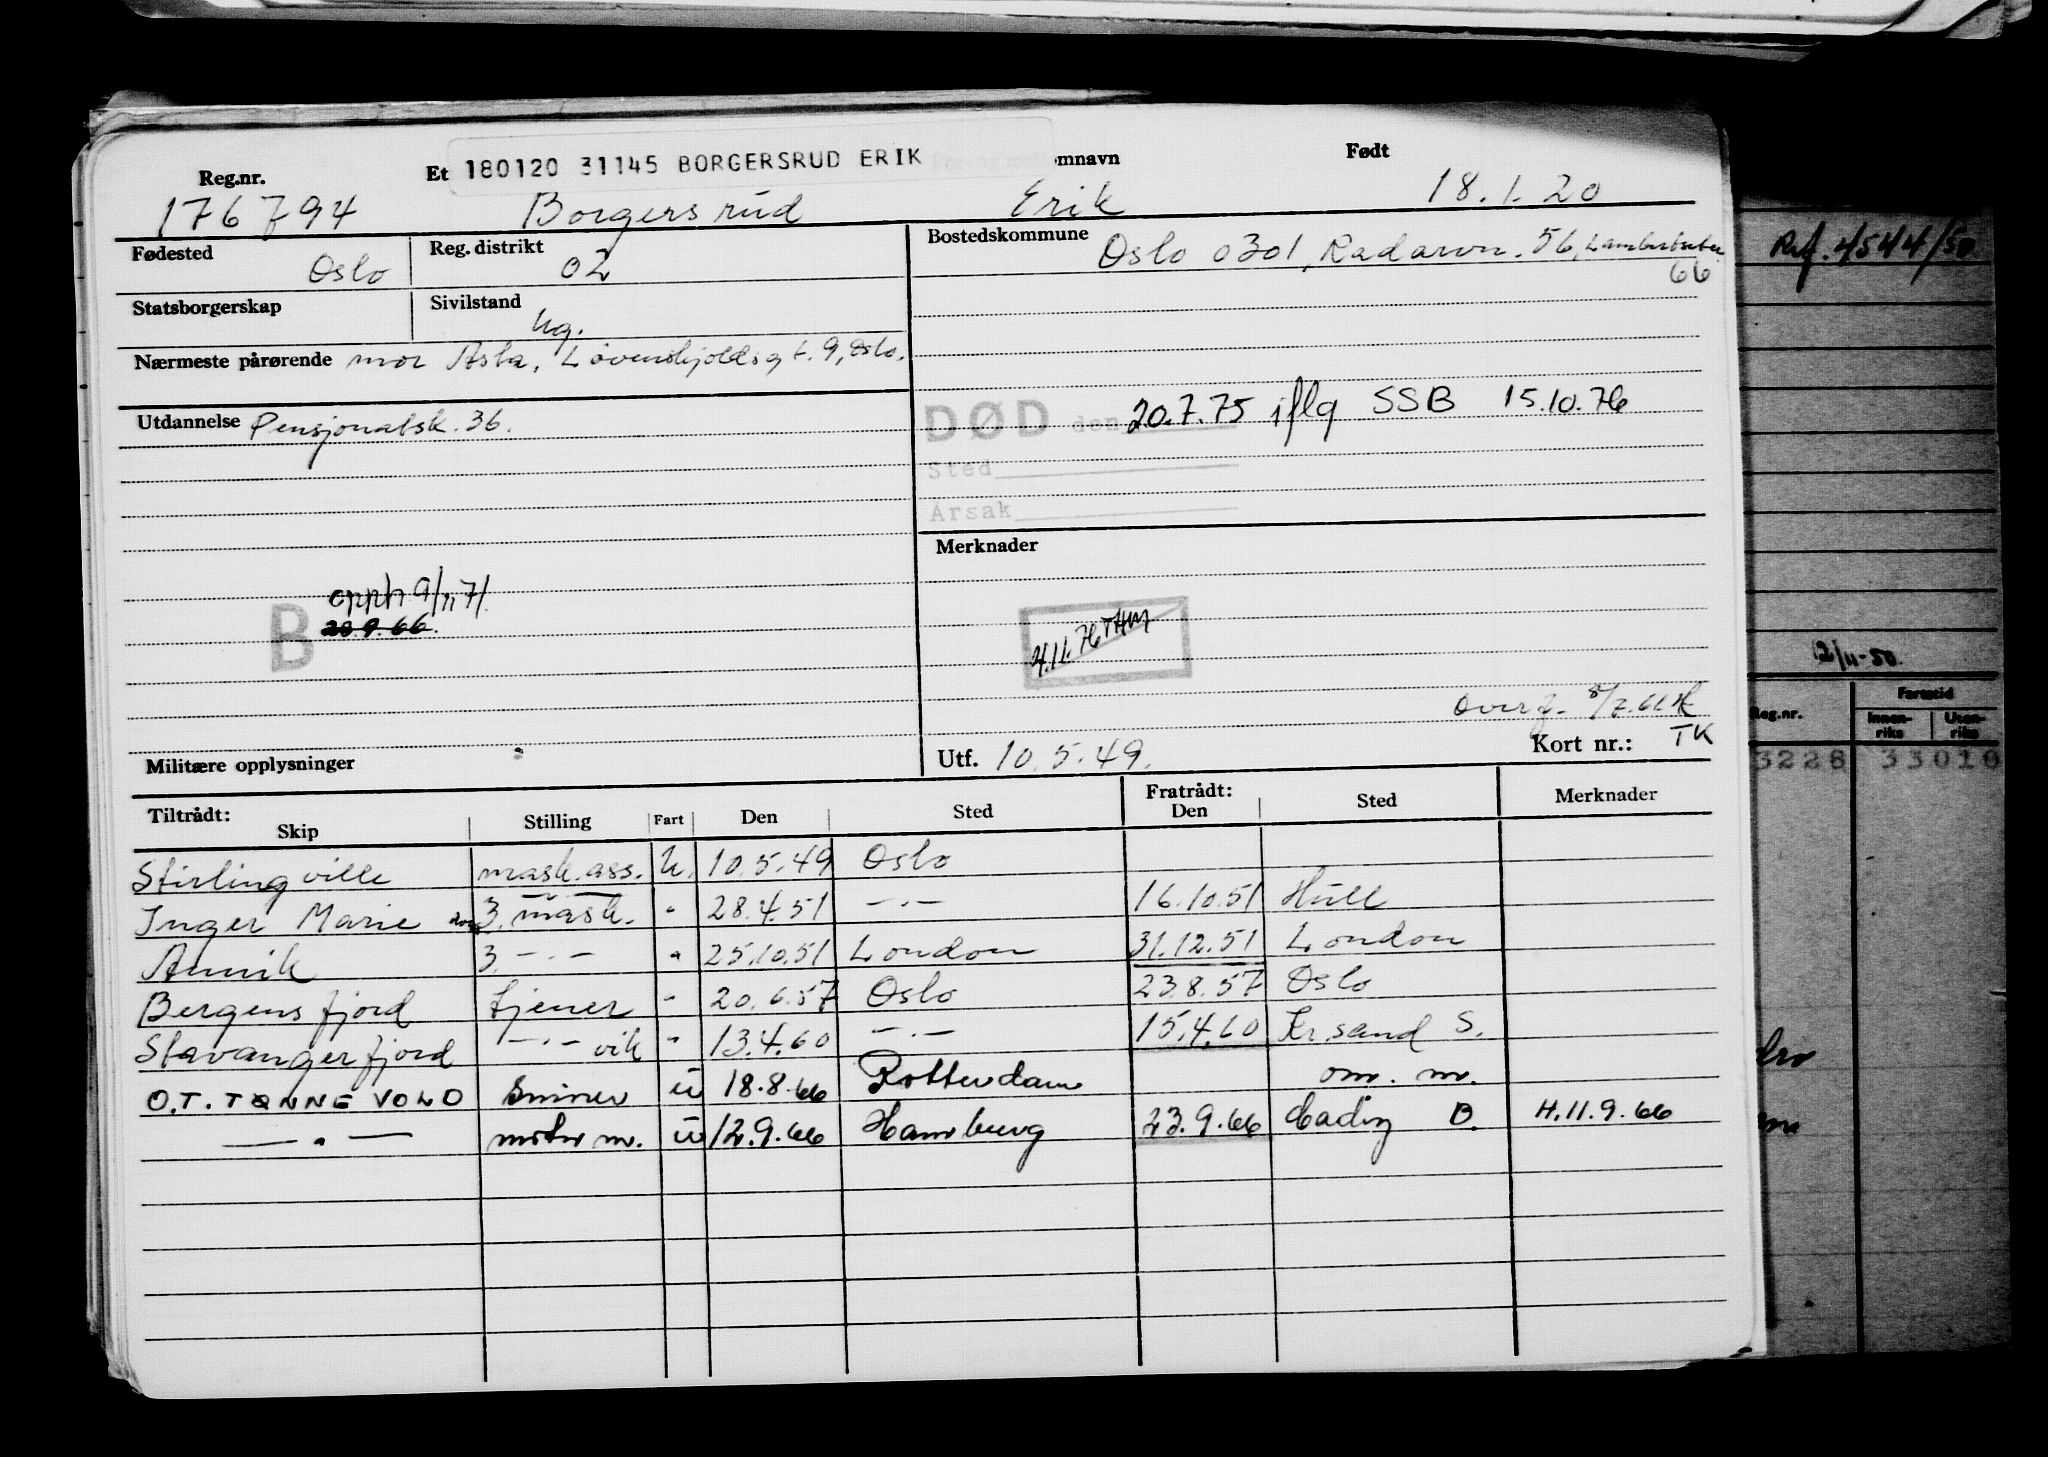 Reg.nr. Et 180120 31145 BORGERSRUD ERIK omnavn Født
176794 Borgersrud Erik 18.1.20
Fødested Oslo Reg. distrikt 02 Bostedskommune Oslo 0301, Radarvn. 56, Lambertseter
66
Statsborgerskap Sivilstand Ug.
Nærmeste pårørende mor Asta, Løvenskjoldsgt. 9, Oslo.
Utdannelse Pensjonatsk. 36.
DØD den 20.7.75 iflg SSB 15.10.76
Sted
Årsak
Merknader
B opph 9/11 71
20.9.66.
4.11.76 THM
Overf. 8/7.66
Militære opplysninger Utf. 10.5.49. Kort nr.: TK
Tiltrådt: Skip Stilling Fart Den Sted Fratrådt: Den Sted Merknader
Stirlingville mask.ass. U. 10.5.49 Oslo
Inger Marie 3. mask. " 28.4.51 —.— 16.10.51 Hull
Annik 3. —.— " 25.10.51 London 31.12.51 London
Bergensfjord tjener " 20.6.57 Oslo 23.8.57 Oslo
Stavangerfjord —.— vik " 13.4.60 —.— 15.4.60 Kr.sand S.
O.T. TØNNEVOLD Smører U 18.8.66 Rotterdam om. m.
—.— motor m. U 12.9.66 Hamburg 23.9.66 Cadiz D. H.11.9.66
Ref. 4544/50
12/11-50.
Reg.nr. Fartstid
Innen-riks Uten-riks
3228 33010